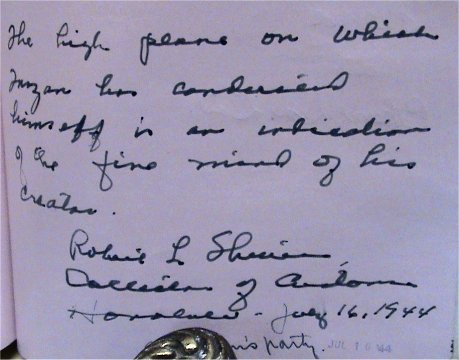 The high plane on which
Tarzan has conducted
himself is an indication
of the fine mind of his
creator.
Robert L
Collector of Customs
Honolulu - July 16, 1944
party. JUL 1 6 '44